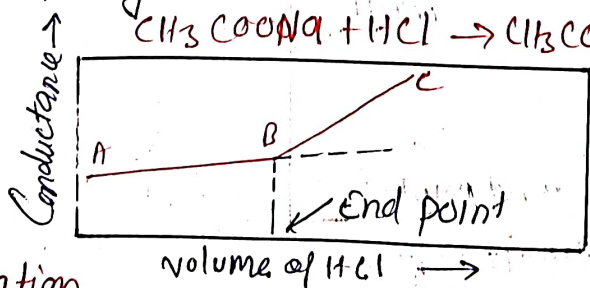 CH3COONa + HCl → CH3CO
Conductance →
A
B
C
End point
Volume of HCl →